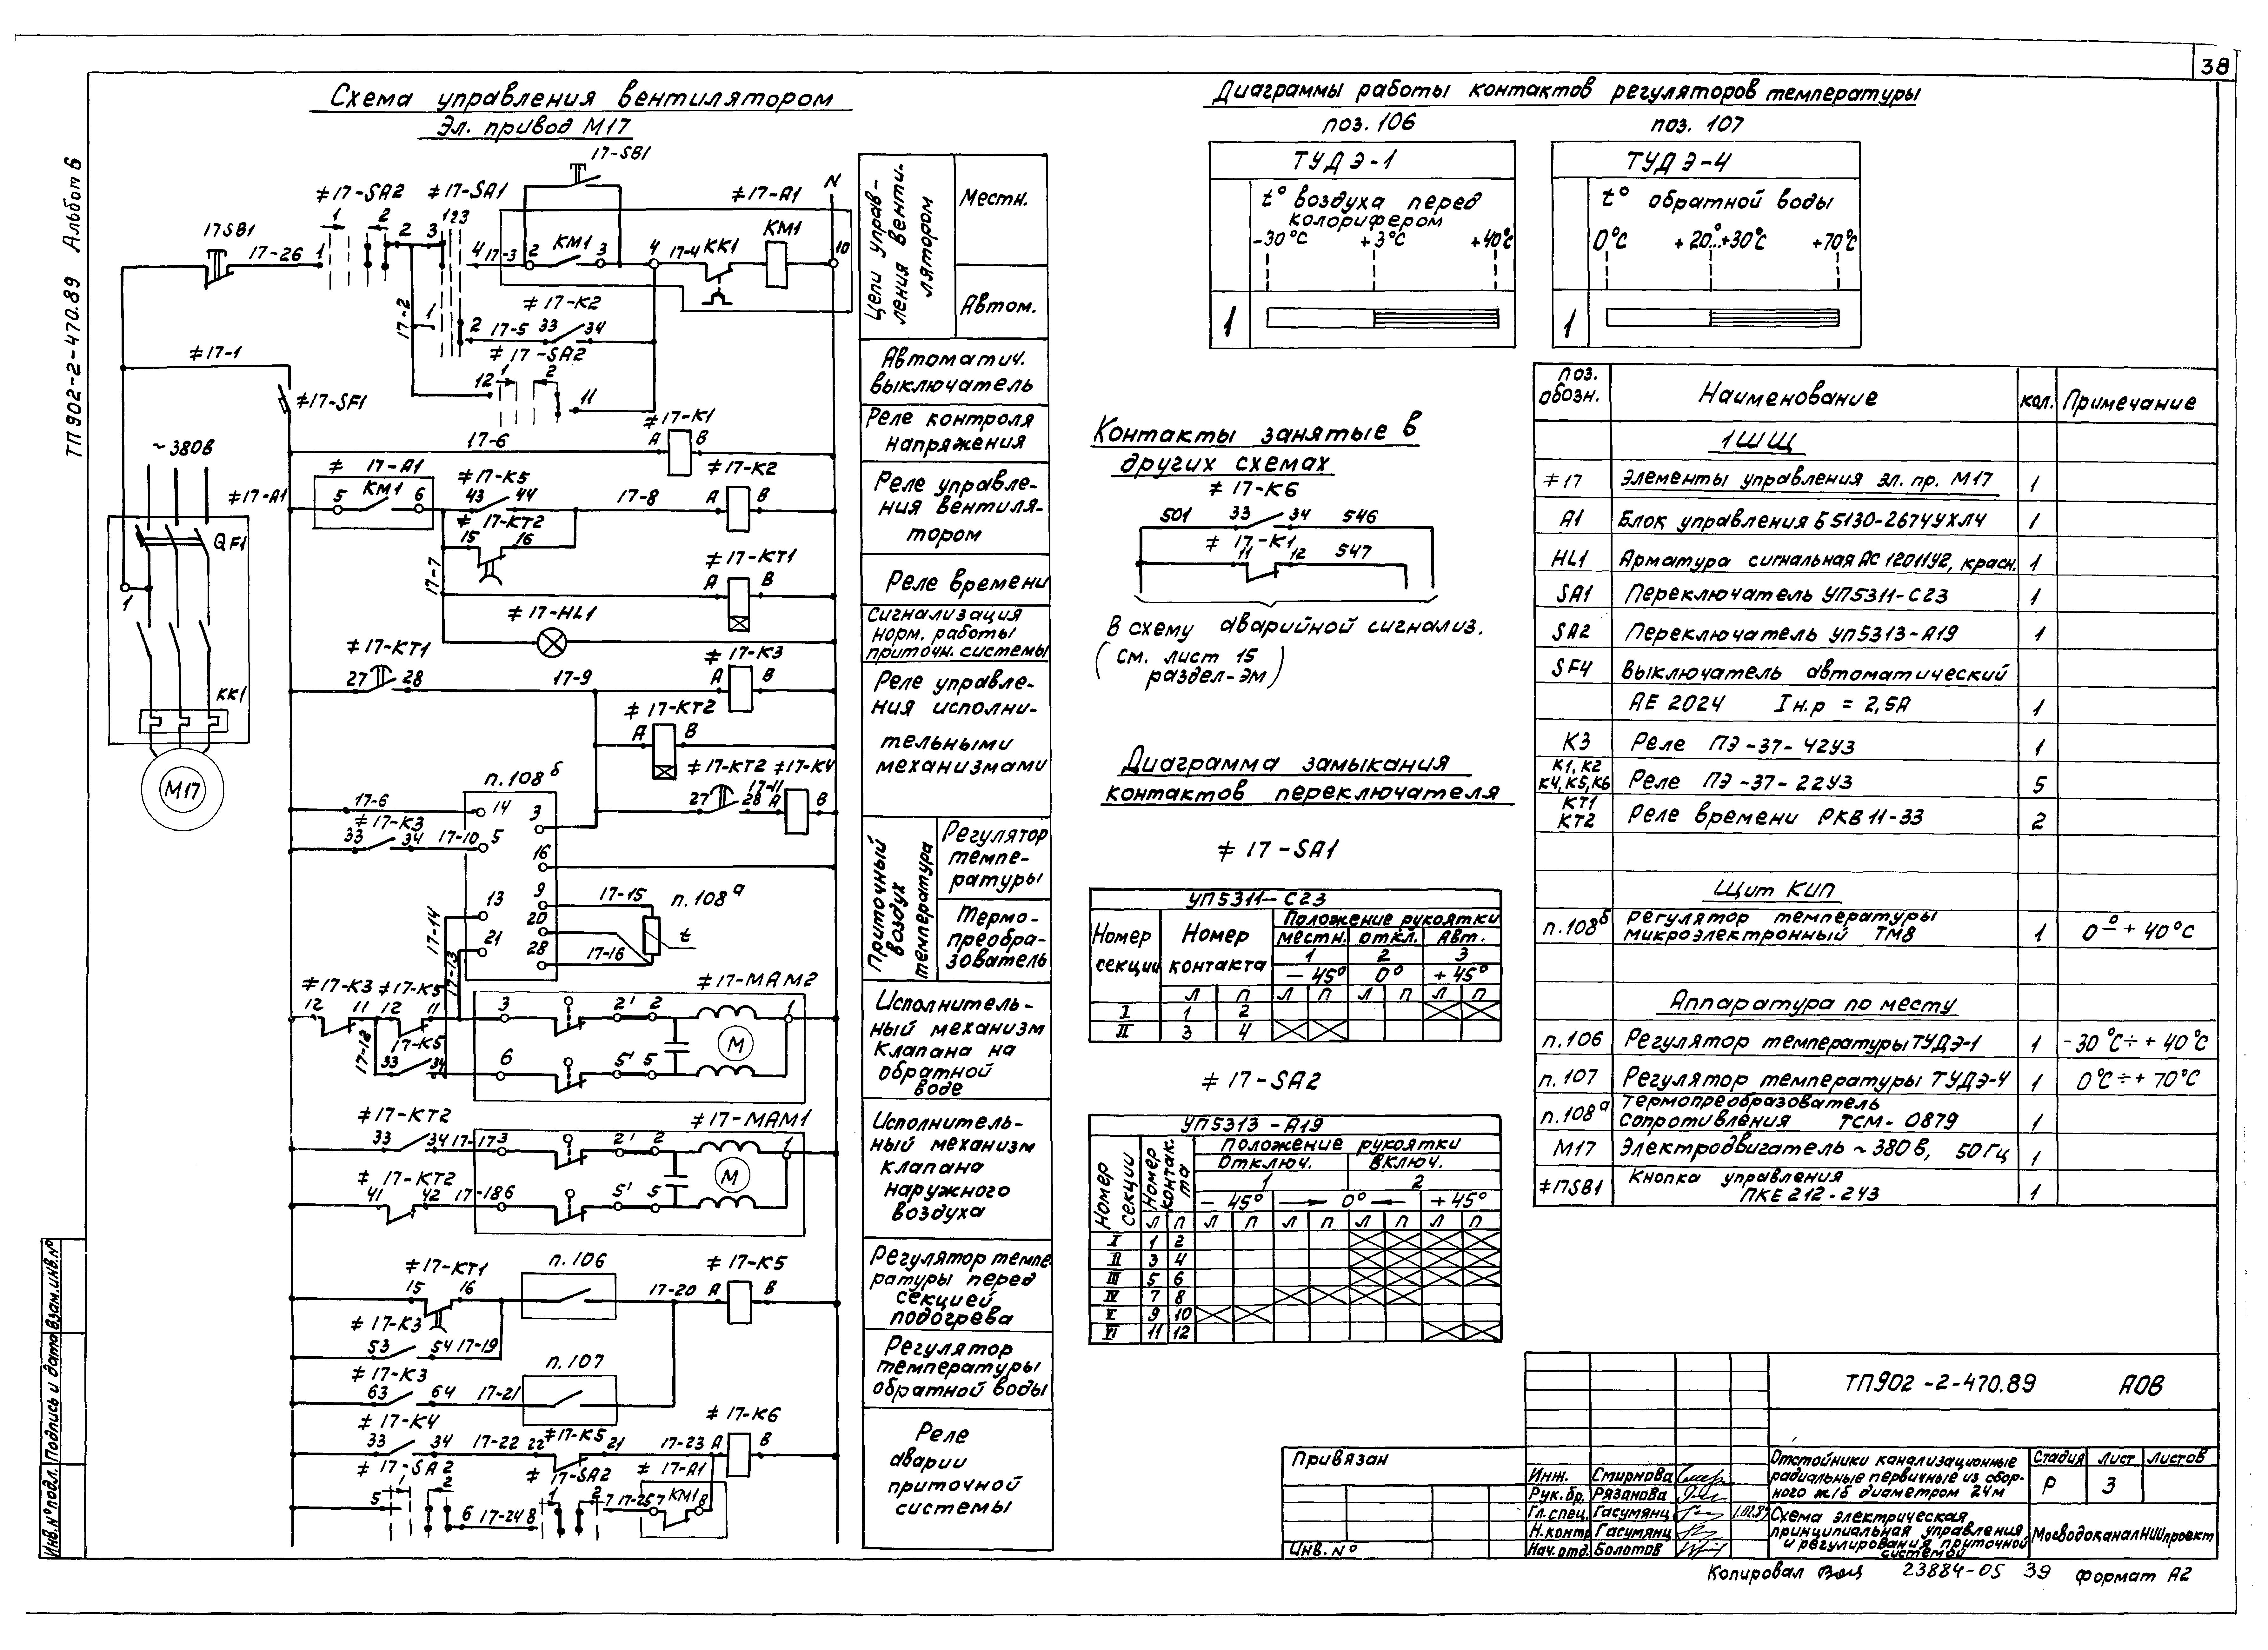 38
ТП902-2-470.89 Альбом 6
Схема управления вентилятором
Эл. привод М17
17-SB1
≠17-SA2
≠17-SA1
≠17-A1
N
17SB1
17-26
1
1
2
2
3
1 2 3
4
17-3
2
KM1
3
4
17-4
KK1
KM1
10
≠17-K2
17-2
1
2
17-5
33
34
≠17-SA2
≠17-1
12
1
2
11
≠17-SF1
≠17-K1
17-6
A
B
~380В
≠ 17-A1
≠17-K5
≠17-K2
≠17-A1
5
KM1
6
43
44
17-8
A
B
QF1
≠ 17-KT2
15
16
≠17-KT1
17-7
A
B
1
≠17-HL1
≠17-KT1
≠17-K3
27
28
17-9
A
B
KK1
≠17-KT2
A
B
M17
п.108б
≠17-KT2
≠17-K4
17-6
14
3
27
28
17-11
A
B
≠17-K3
33
34
17-10
5
16
9
17-15
п.108а
13
20
t
17-14
21
28
17-16
17-13
≠17-K3
≠17-K5
≠17-MAM2
12
11
12
11
3
2'
2
1
17-12
17-K5
33
34
6
5'
5
M
≠17-KT2
≠17-MAM1
33
34
17-17
3
2'
2
1
≠17-KT2
M
41
42
17-18
6
5'
5
≠17-KT1
п.106
≠17-K5
15
16
17-20
A
B
≠17-K3
53
54
17-19
≠17-K3
п.107
63
64
17-21
≠17-K4
≠17-K6
33
34
17-22
22
≠17-K5
21
17-23
A
B
≠17-SA2
≠17-SA2
≠17-A1
5
1
2
6
17-24
8
1
2
7
17-25
7
KM1
8
Цепи управления вентилятором
Местн.
Автом.
Автоматич.
выключатель
Реле контроля
напряжения
Реле управле-
ния вентиля-
тором
Реле времени
Сигнализация
норм. работы
приточн. системы
Реле управле-
ния исполни-
тельными
механизмами
Приточный воздух
температура
Регулятор
темпе-
ратуры
Термо-
преобра-
зователь
Исполнитель-
ный механизм
клапана на
обратной
воде
Исполнитель-
ный механизм
клапана
наружного
воздуха
Регулятор темпе-
ратуры перед
секцией
подогрева
Регулятор
температуры
обратной воды
Реле
аварии
приточной
системы
Диаграммы работы контактов регуляторов температуры
поз. 106
поз. 107
ТУДЭ-1
t° воздуха перед
колорифером
-30°С +3°С +40°С
1
ТУДЭ-4
t° обратной воды
0°С +20°..+30°С +70°С
1
Контакты занятые в
других схемах
≠ 17-K6
501
33
34
546
≠ 17-K1
11
12
547
В схему аварийной сигнализ.
(см. лист 15
раздел-эм)
Диаграмма замыкания
контактов переключателя
≠ 17-SA1
УП5311-С23
Номер секции
Номер контакта
Положение рукоятки
местн. откл. Авт.
1 2 3
-45° 0° +45°
Л П Л П Л П Л П
I 1 2
II 3 4
≠ 17-SA2
УП5313-А19
Номер секции
Номер контак. та
Положение рукоятки
Отключ. Включ.
1 2
-45° 0° +45°
Л П Л П Л П Л П Л П
I 1 2
II 3 4
III 5 6
IV 7 8
V 9 10
VI 11 12
поз. обозн. Наименование кол. Примечание
1ШЩ
≠17 Элементы управления эл. пр. М17 1
А1 Блок управления Б5130-2674УХЛ4 1
HL1 Арматура сигнальная АС12011У2, красн. 1
SA1 Переключатель УП5311-С23 1
SA2 Переключатель УП5313-А19 1
SF4 Выключатель автоматический
АЕ 2024 Iн.р = 2,5А 1
К3 Реле ПЭ-37-42У3 1
К1, К2 К4, К5, К6 Реле ПЭ-37-22У3 5
КТ1 КТ2 Реле времени РКВ11-33 2
Щит КИП
п.108б Регулятор температуры
микроэлектронный ТМ8 1 0°÷+40°С
Аппаратура по месту
п.106 Регулятор температуры ТУДЭ-1 1 -30°С÷+40°С
п.107 Регулятор температуры ТУДЭ-4 1 0°С÷+70°С
п.108а Термопреобразователь
сопротивления ТСМ-0879 1
М17 Электродвигатель ~380В, 50Гц 1
≠17SB1 Кнопка управления
ПКЕ 212-2У3 1
ТП902-2-470.89 АОВ
Привязан
Инв. №
Инж. Смирнова
Рук.бр. Рязанова
Гл.спец. Гасумянц 1.02.89
Н.контр Гасумянц
Нач.отд. Болотов
Отстойники канализационные
радиальные первичные из сбор-
ного ж/б диаметром 24м
Стадия Лист Листов
Р 3
Схема электрическая
принципиальная управления
и регулирования приточной
системой
МосводоканалНИИпроект
Копировал 23884-05 39 Формат А2
Инв.№подл. Подпись и дата Взам.инв.№